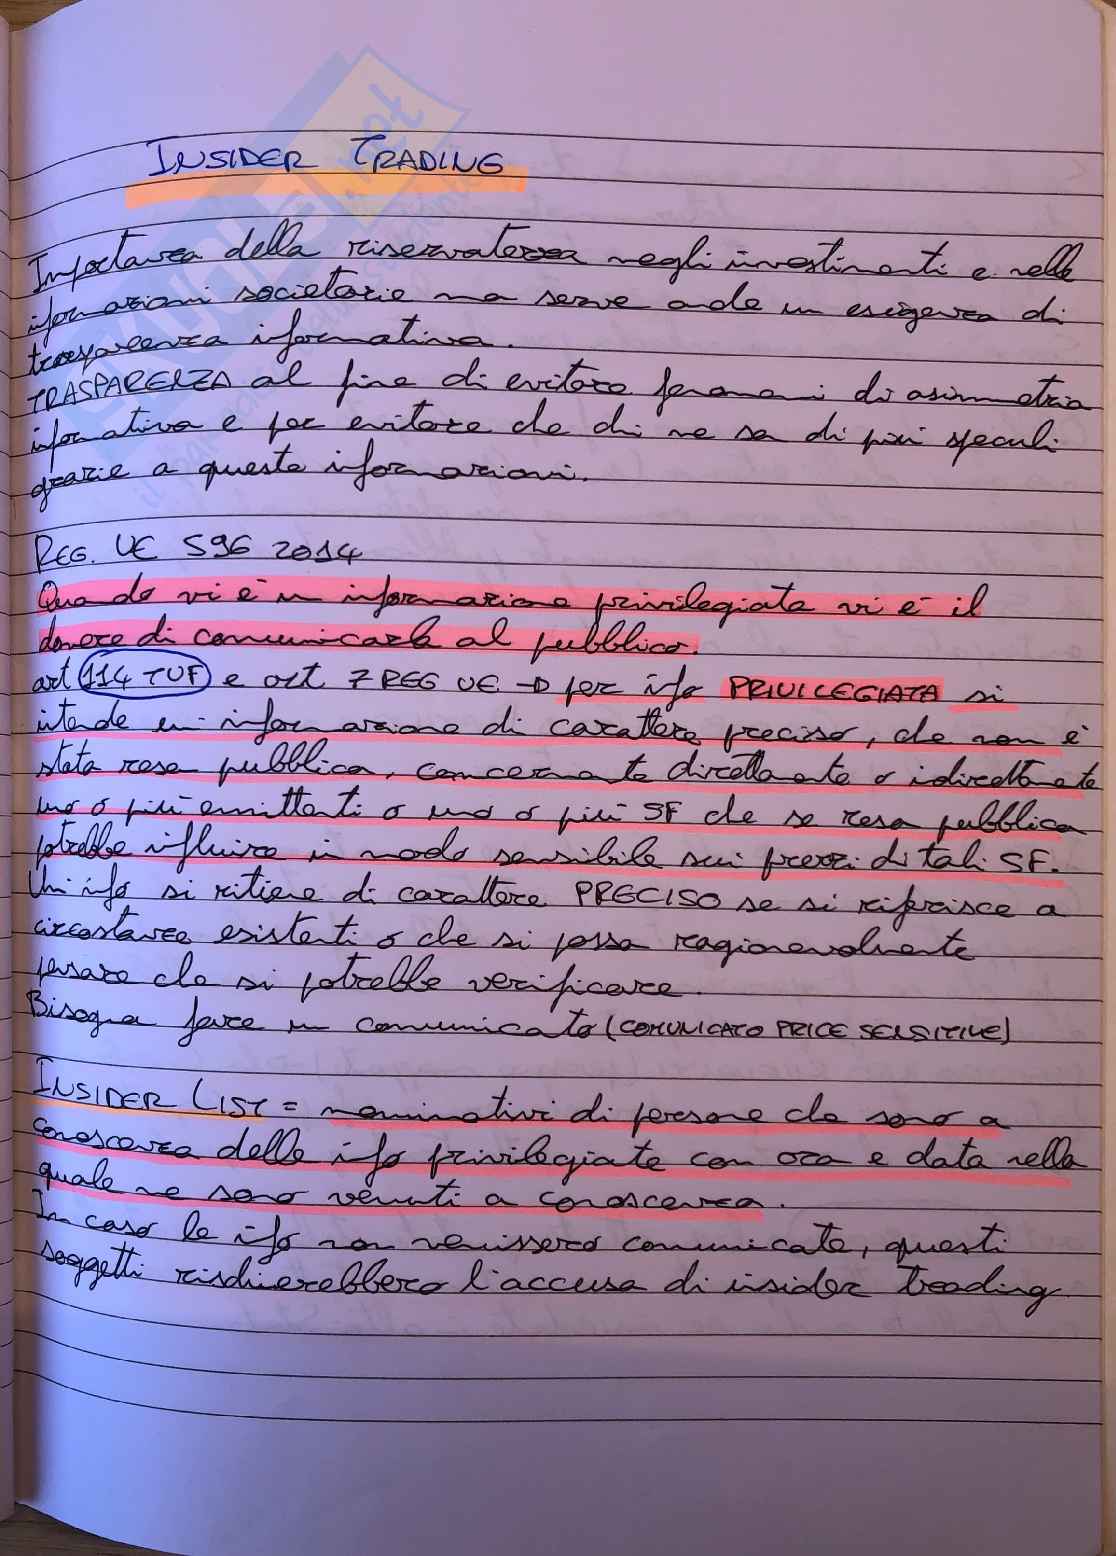 INSIDER TRADING
Importanza della riservatezza negli investimenti e nelle
informazioni societarie ma serve anche un esigenza di
trasparenza informativa.
TRASPARENZA al fine di evitare fenomeni di asimmetria
informativa e per evitare che chi ne sa di più speculi
grazie a queste informazioni.
REG. UE 596 2014
Quando vi è un informazione privilegiata vi è il
dovere di comunicarla al pubblico.
art 114 TUF e art 7 REG UE → per info PRIVILEGIATA si
intende un informazione di carattere preciso, che non è
stata resa pubblica, concernente direttamente o indirettamente
uno o più emittenti o uno o più SF che se resa pubblica
potrebbe influire in modo sensibile sui prezzi di tali SF.
Un info si ritiene di carattere PRECISO se si riferisce a
circostanze esistenti o che si possa ragionevolmente
pensare che si potrebbe verificare.
Bisogna fare un comunicato (COMUNICATO PRICE SENSITIVE)
INSIDER LIST = nominativi di persone che sono a
conoscenza delle info privilegiate con ora e data nella
quale ne sono venuti a conoscenza.
In caso le info non venissero comunicate, questi
soggetti rischierebbero l'accusa di insider trading